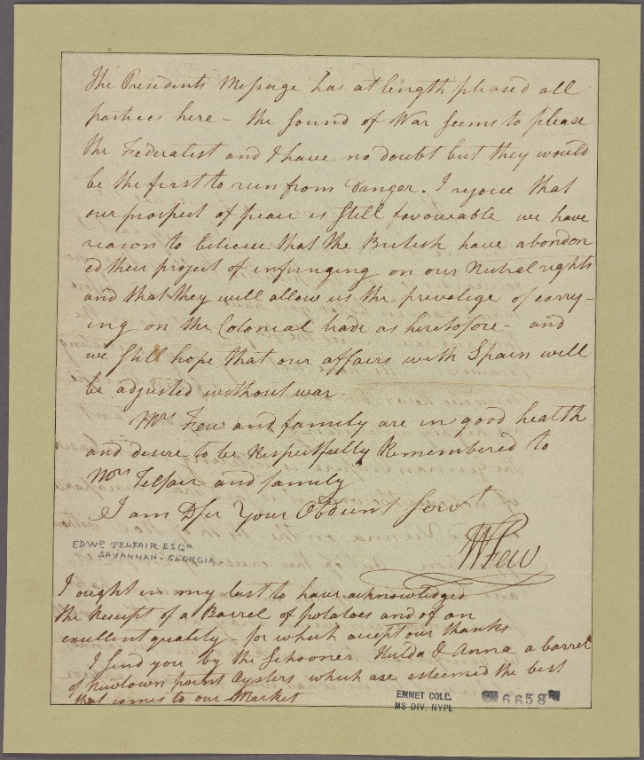 The Presidents Message has at length pleased all
parties here – the sound of War seems to please
the Federalist and I have no doubt but they would
be the first to run from Danger. I rejoice that
our prospect of peace is still favourable we have
reason to believe that the British have abandon
ed their project of infringing on our Nutral rights
and that they will allow us the privelige of carry-
ing on the Colonial trade as heretofore – and
we still hope that our affairs with Spain will
be adjusted without war
Mrs Few and family are in good health
and desire to be Respectfully Remembered to
Mrs Telfair and family
I am Dr Sir Your Obedient Servt
W Few
EDWD TELFAIR ESQR
SAVANNAH. GEORGIA.
I ought in my last to have acknowledged
the Receipt of a Barrel of potatoes and of an
excellent quality – for which accept our thanks
I send you by the Schooner Hulda & Anna a barrel
of Newtown Oysters which are esteemed the best
that comes to our Market
EMMET COLL.
MS DIV. NYPL
6658